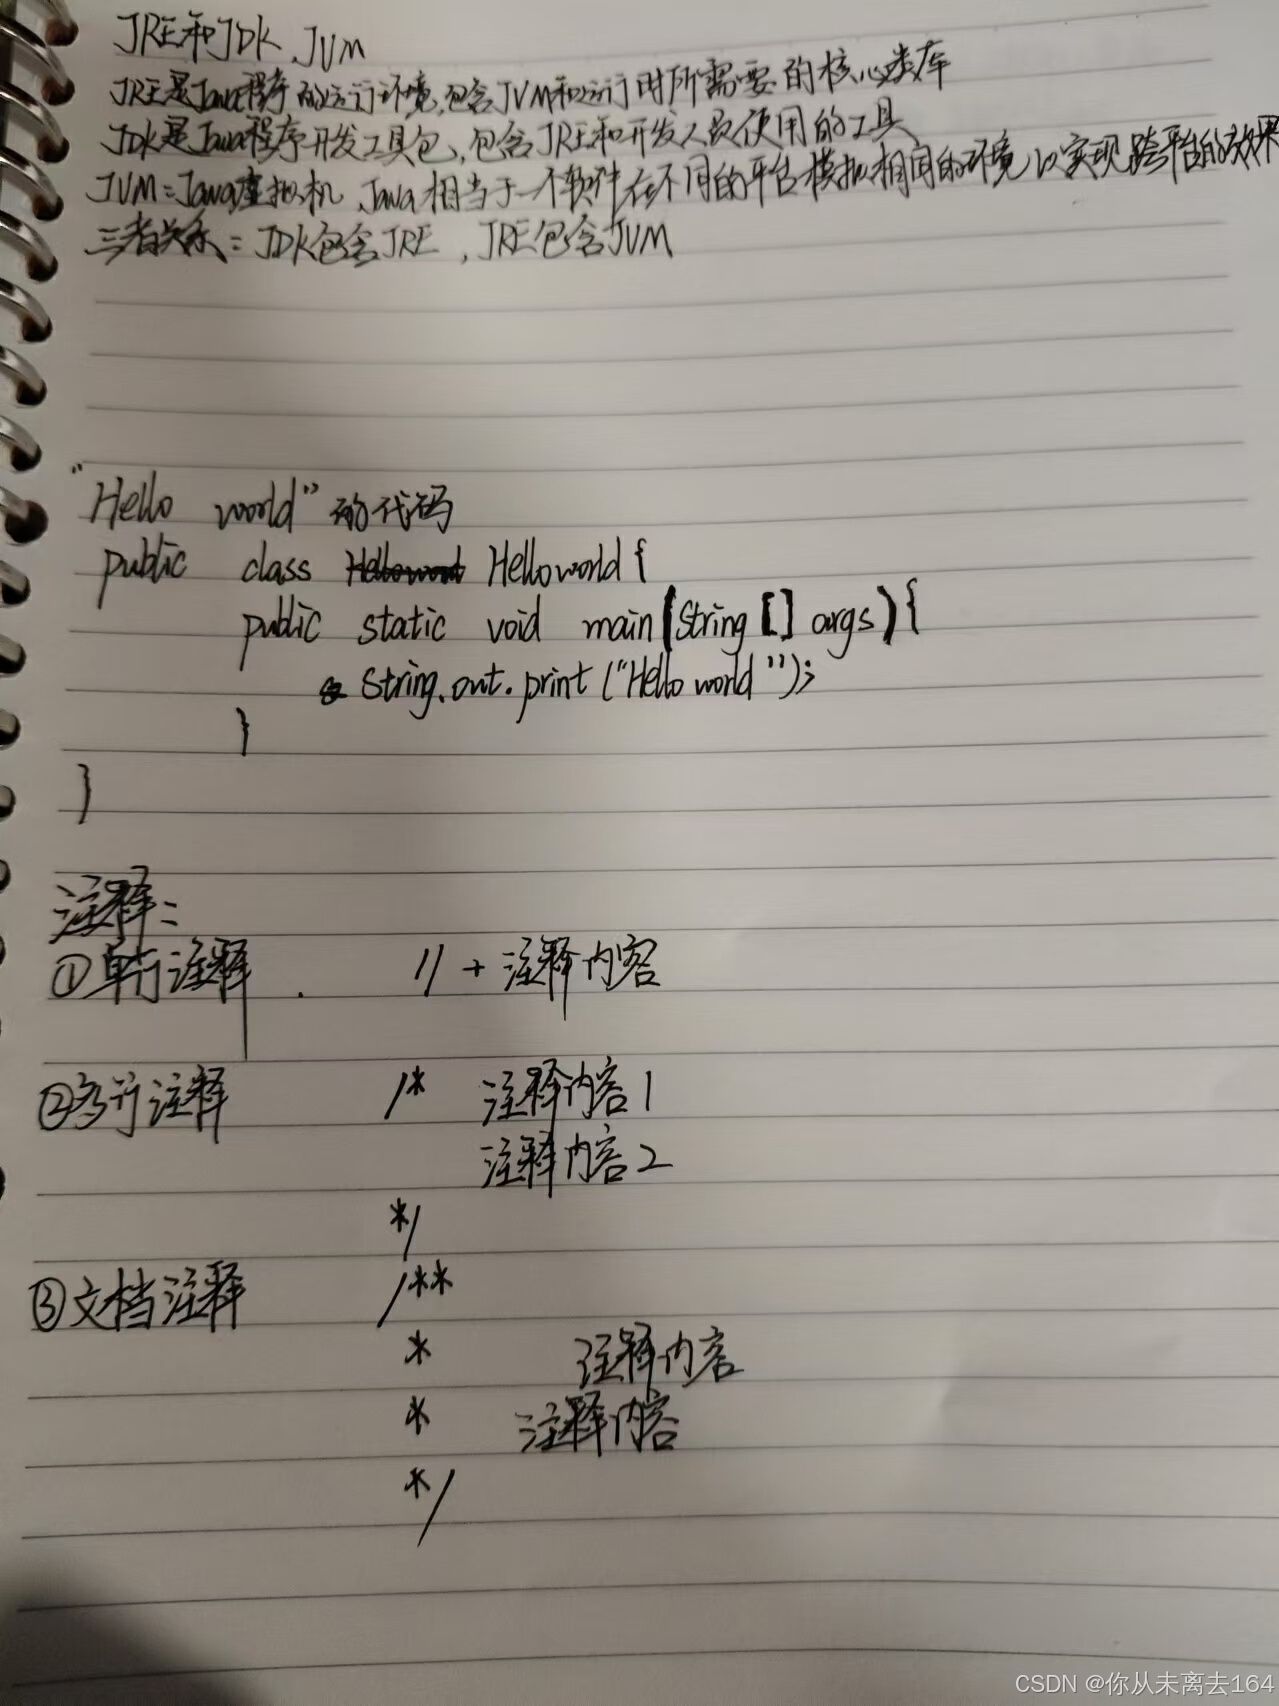 JRE和JDK、JVM
JRE是Java程序的运行环境,包含JVM和运行时所需要的核心类库
JDK是Java程序开发工具包,包含JRE和开发人员使用的工具
JVM:Java虚拟机,Java相当于一个软件在不同的平台模拟相同的环境以实现跨平台的效果
三者关系:JDK包含JRE,JRE包含JVM
"Hello world"的代码
public class Helloworld{
public static void main(String [] args){
String.out.print("Hello world");
}
}
注释:
①单行注释 . // + 注释内容
②多行注释 /* 注释内容1
注释内容2
*/
③文档注释 /**
* 注释内容
* 注释内容
*/
CSDN @你从未离去164